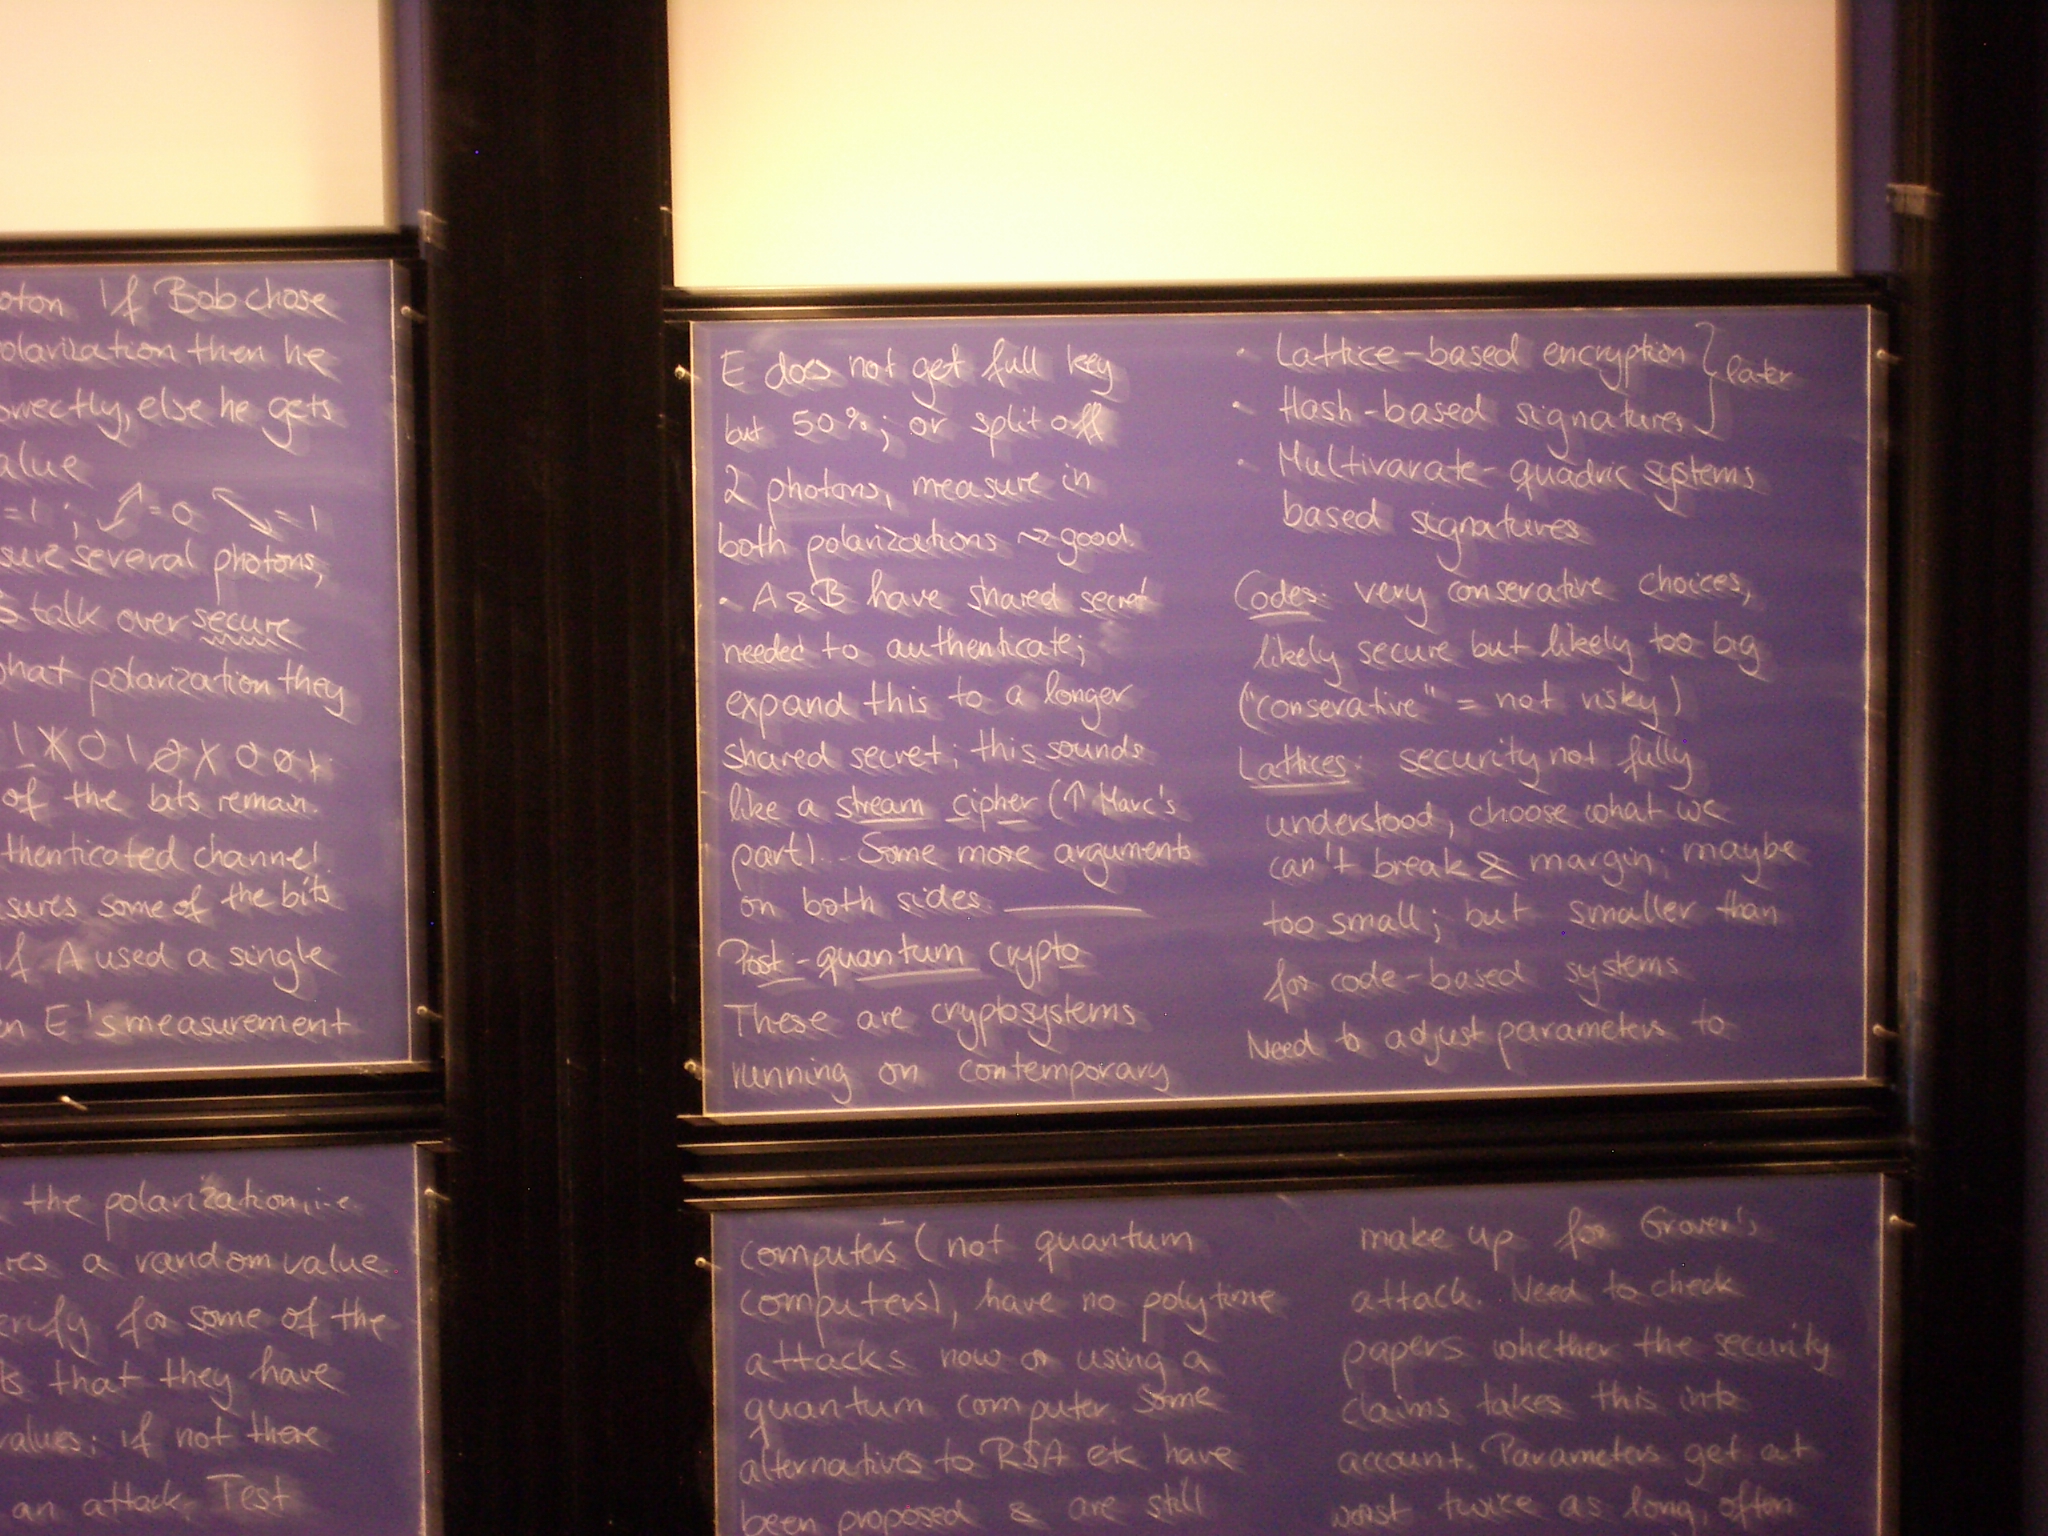 oton If Bob chose
olarization then he
orrectly, else he gets
alue
=1 ; ↗=0 ↘=1
sure several photons,
s talk over secure
hat polarization they
of the bits remain.
thenticated channel.
sures some of the bits
if A used a single
en E's measurement
the polarization, i.e.
res a random value.
erify for some of the
ts that they have
values; if not there
an attack. Test
E does not get full key
but 50%; or split off
2 photons, measure in
both polarizations ⇝ good.
• A & B have shared secret
needed to authenticate;
expand this to a longer
shared secret; this sounds
like a stream cipher (↑ Marc's
part)... Some more arguments
on both sides.
Post-quantum crypto
These are cryptosystems
running on contemporary
computers (not quantum
computers), have no polytime
attacks now or using a
quantum computer. Some
alternatives to RSA etc have
been proposed & are still
• Lattice-based encryption } later
• Hash-based signatures
• Multivarate-quadric systems
based signatures
Codes: very conservative choices,
likely secure but likely too big
("conserative" = not risky)
Lattices: security not fully
understood, choose what we
can't break & margin; maybe
too small; but smaller than
for code-based systems
Need to adjust parameters to
make up for Grover's
attack. Need to check
papers whether the security
claims takes this into
account. Parameters get at
worst twice as long, often